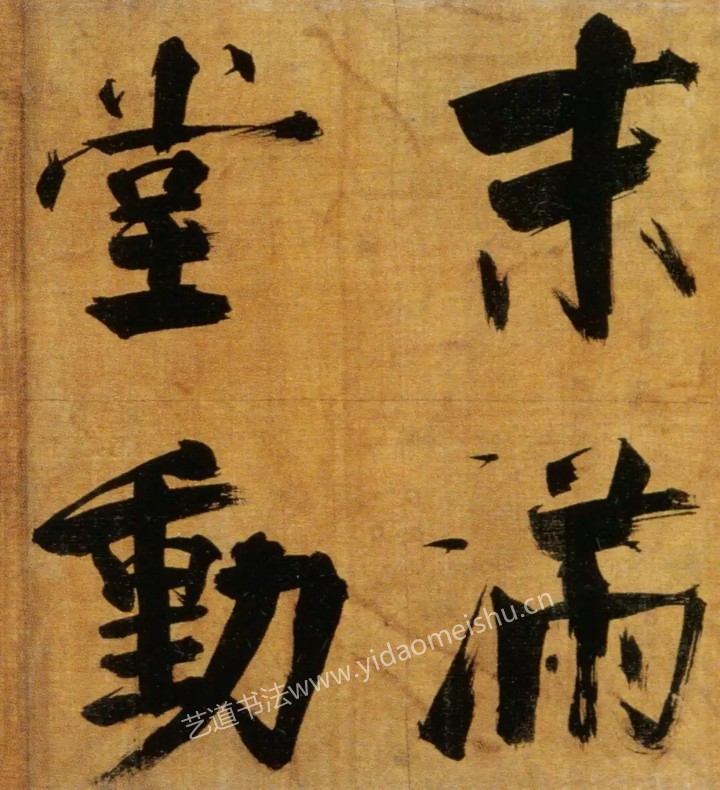 末满
堂動
艺道书法www.yidaomeishu.cn